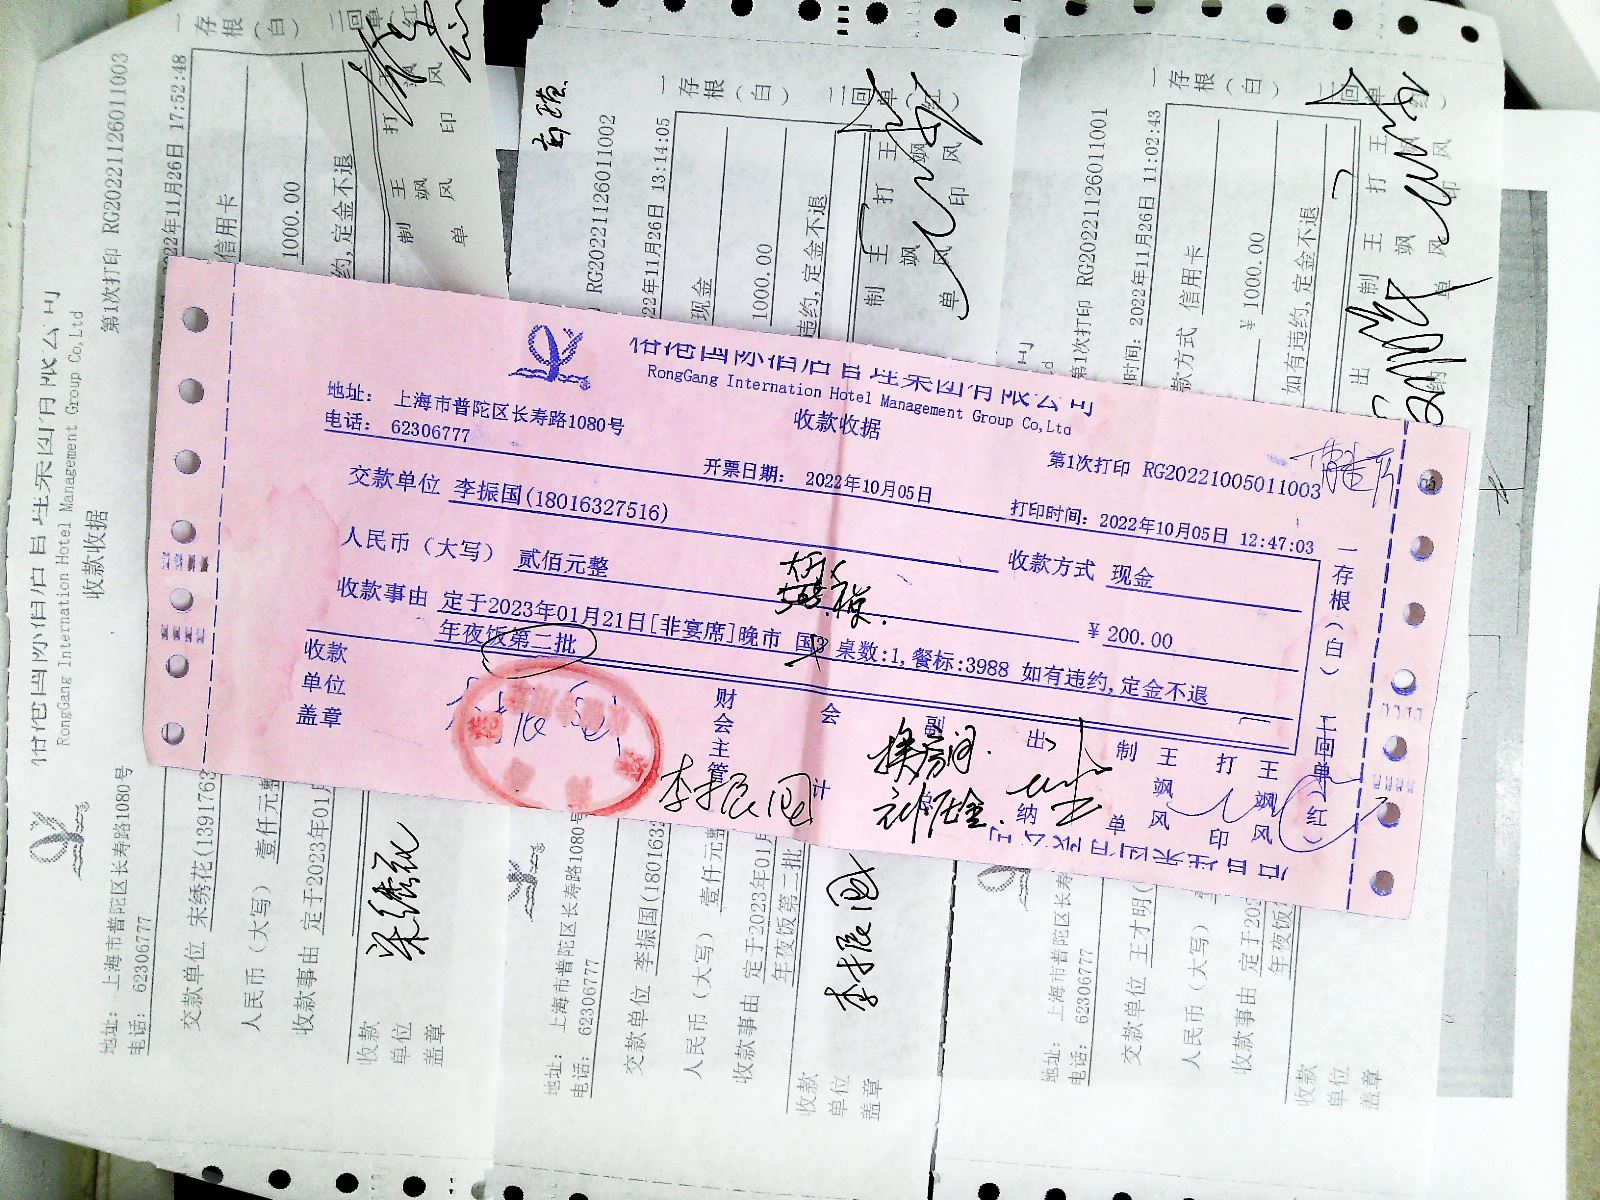 RongGang Internation Hotel Management Group Co,Ltd
收款收据
地址: 上海市普陀区长寿路1080号
电话: 62306777
第1次打印 RG20221005011003
开票日期: 2022年10月05日
打印时间: 2022年10月05日 12:47:03
交款单位 李振国(18016327516)
收款方式 现金
人民币(大写) 贰佰元整
¥ 200.00
收款事由 定于2023年01月21日[非宴席]晚市 国 桌数:1,餐标:3988 如有违约,定金不退
年夜饭第二批
收款单位盖章
财会主管
会计
出纳
制单 王飒风
打印 王飒风
一存根(白)
二回单(红)
李振国
换房间
RongGang Internation Hotel Management Group Co,Ltd
收款收据
第1次打印 RG20221126011003
22年11月26日 17:52:48
地址: 上海市普陀区长寿路1080号
电话: 62306777
交款单位 宋绣花(1391763
信用卡
人民币(大写) 壹仟元整
1000.00
收款事由 定于2023年01月
约,定金不退
收款单位盖章
制单 王飒风
打印
一存根(白)
RG20221126011002
22年11月26日 13:14:05
地址: 上海市普陀区长寿路1080号
电话: 62306777
交款单位 李振国(180163
现金
人民币(大写) 壹仟元整
1000.00
收款事由 定于2023年0
年夜饭第二批
违约,定金不退
收款单位盖章
李振国
制单 王飒风
打印 王飒风
一存根(白)
第1次打印 RG20221126011001
时间: 2022年11月26日 11:02:43
地址: 上海市普陀区长寿
电话: 62306777
交款单位 王才明(
款方式 信用卡
人民币(大写)
¥ 1000.00
收款事由 定于202
年夜饭
如有违约,定金不退
收款单位盖章
出纳
制单 王飒风
打印 王
一存根(白)